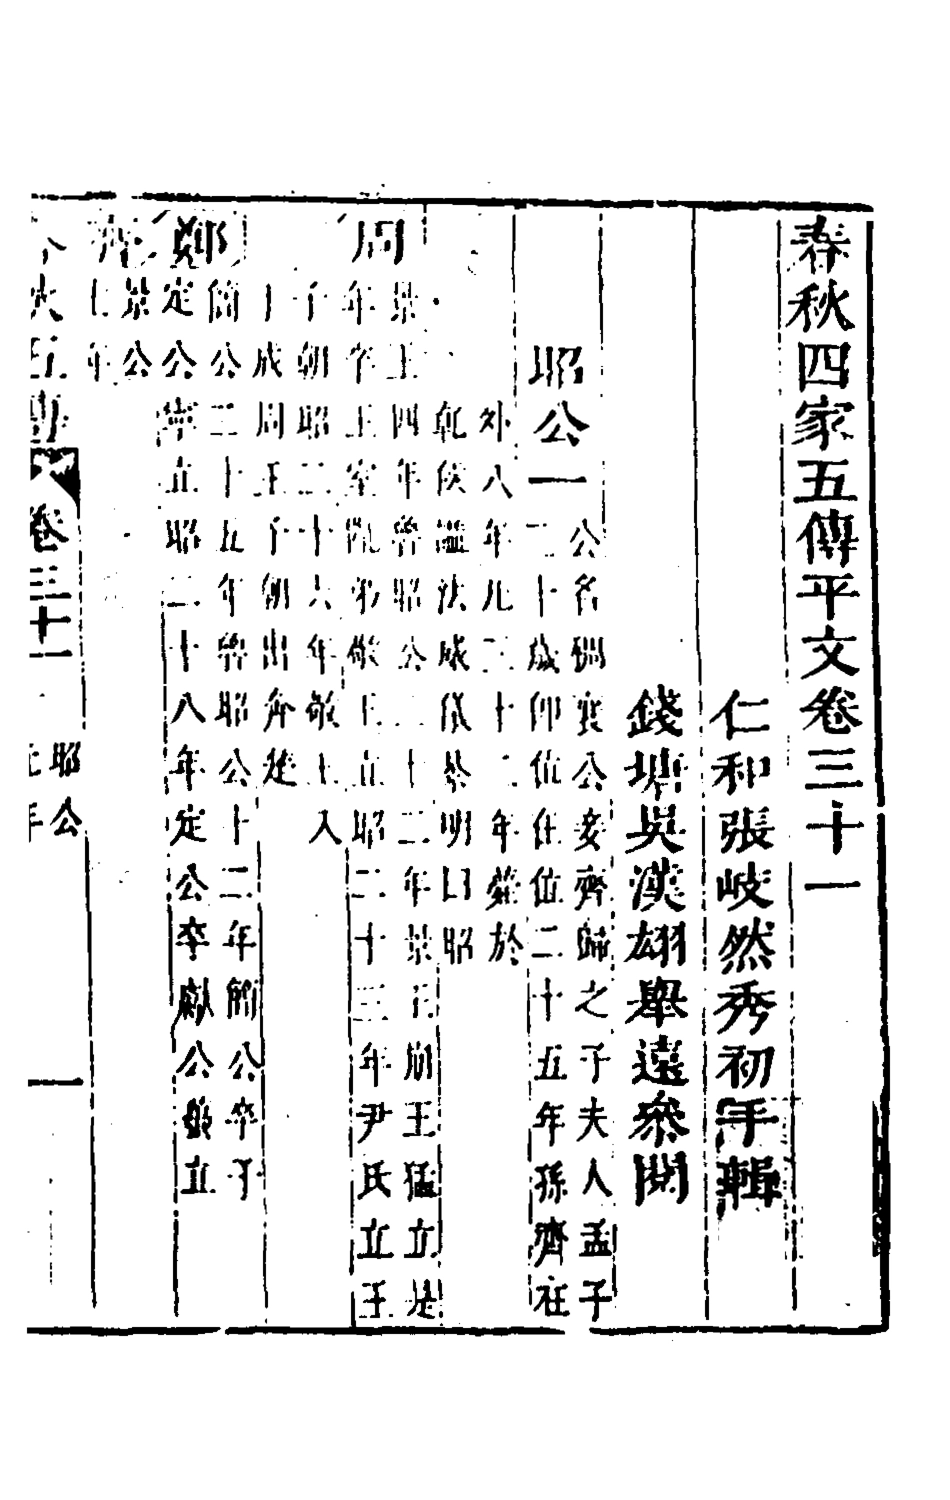 春秋四家五傳平文卷三十一
仁和張岐然秀初手輯
錢塘吳漢翊舉遠叅閱
昭公一
公名稠襄公妾齊歸之子夫人孟子
二十歲即位在位二十五年孫齊在
外八年凡三十二年薨於
乾侯諡法威儀恭明曰昭
周
景王四年魯昭公二十二年景王崩王猛立是
年卒王室亂弟敬王立昭二十三年尹氏立王
子朝昭二十六年敬王入
于成周王子朝出奔楚
鄭
簡公二十五年魯昭公十二年簡公卒子
定公寧立昭二十八年定公卒獻公立
齊
景公
七年
秋五傳 卷三十一 昭公 年 一